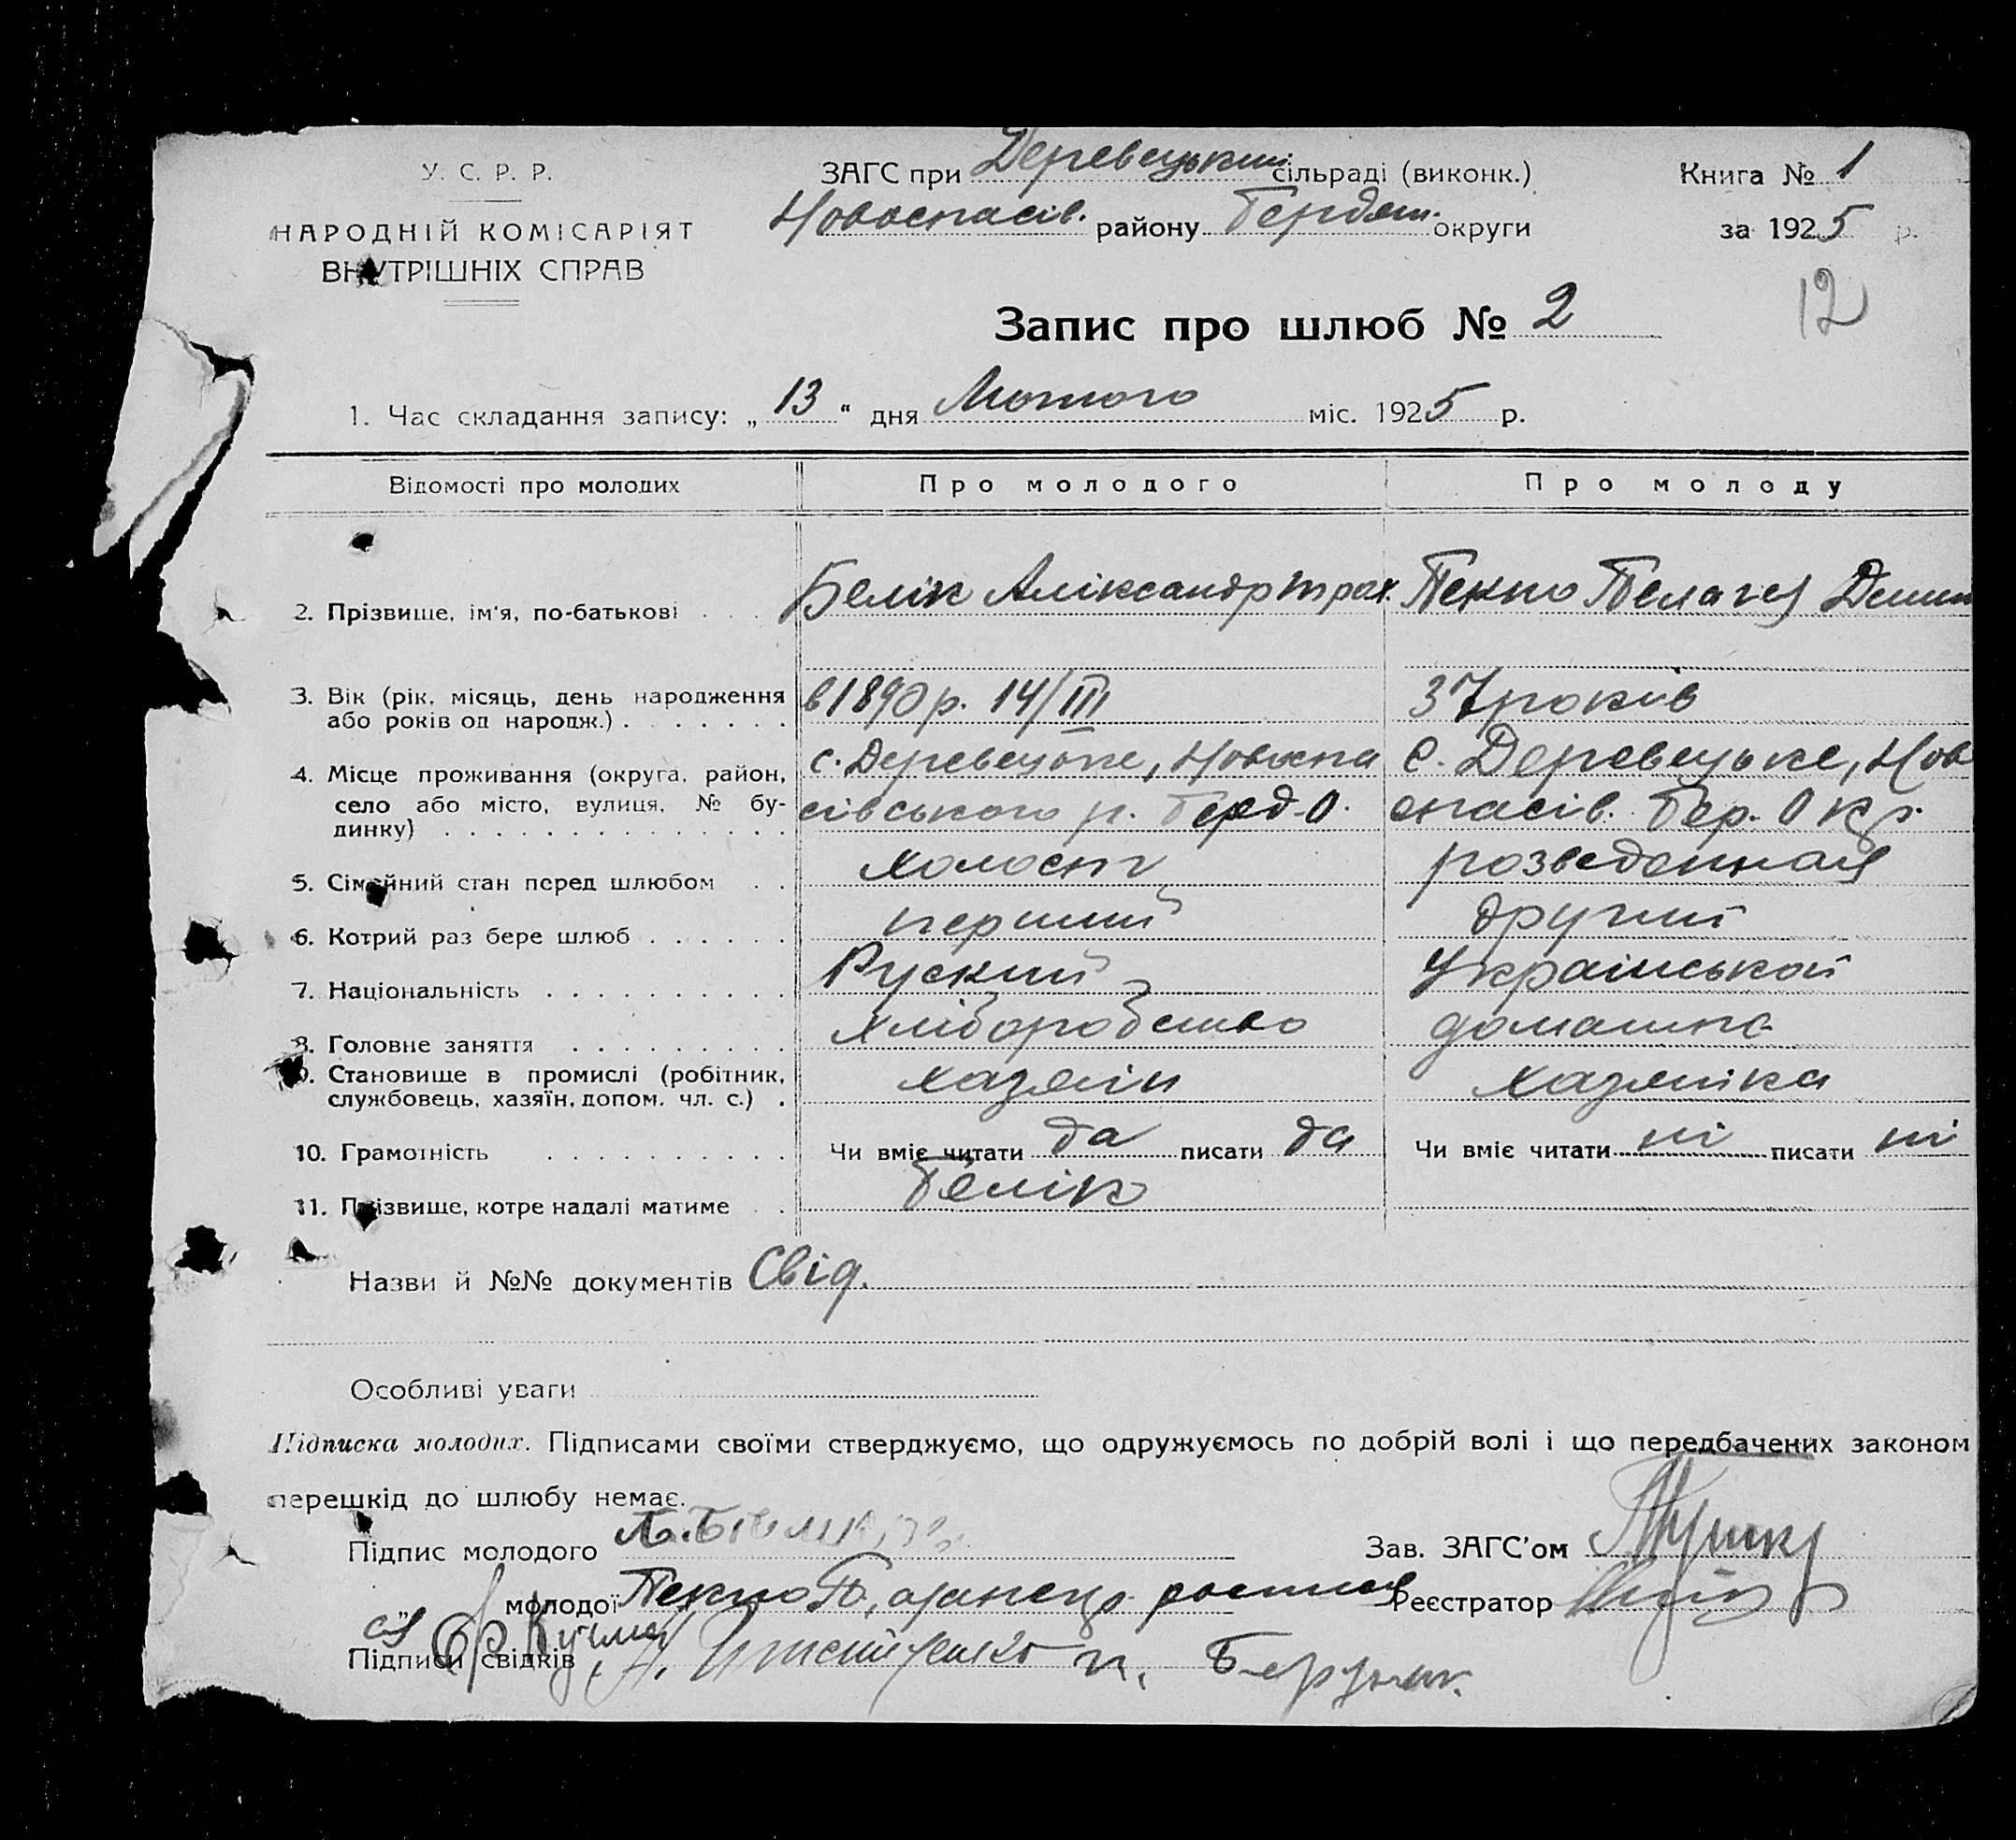 У. С. Р. Р.
НАРОДНІЙ КОМІСАРІЯТ
ВНУТРІШНІХ СПРАВ
ЗАГС при Деревецький сільраді (виконк.)
Новоспасів. району Бердян. округи
Книга № 1
за 1925 р.
12
Запис про шлюб № 2
1. Час складання запису: „ 13 " дня Лютого міс. 1925 р.
Відомості про молодих Про молодого Про молоду
2. Прізвище, ім'я, по-батькові . . . Белік Аліксандр Трох. Текто Пелагея Демим
3. Вік (рік, місяць, день народження в 1890 р. 14/III 37 років
або років од народж.) . . . . . . .
4. Місце проживання (округа, район, с. Деревецьке, Новоспа с. Деревецьке, Нов
село або місто, вулиця, № бу- сівського р. Берд. О. спасів. Бер. Окр.
динку) . . . . . . . . . . . . . .
5. Сімейний стан перед шлюбом . . холост розведенная
6. Котрий раз бере шлюб . . . . . . перший другий
7. Національність . . . . . . . . . . Руский Українськой
8. Головне заняття . . . . . . . . . хліборобство домашнє
9. Становище в промислі (робітник, хазяїн хазяйка
службовець, хазяїн, допом. чл. с.) .
10. Грамотність . . . . . . . . . . Чи вміє читати да писати да Чи вміє читати ні писати ні
11. Прізвище, котре надалі матиме . . Белік
Назви й №№ документів Свід.
Особливі уваги
Підписка молодих. Підписами своїми стверджуємо, що одружуємось по добрій волі і що передбачених законом
перешкід до шлюбу немає.
Підпис молодого
Зав. ЗАГС'ом
„ молодої Текто П.
Реєстратор
Підписи свідків Кучма